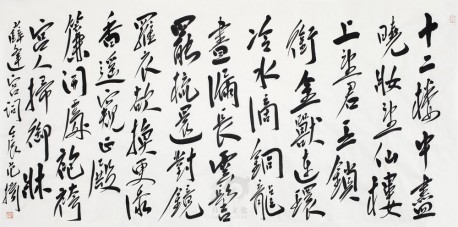 十二樓中盡
曉妝望仙樓
上望君王鎖
銜金獸連環
冷水滴銅龍
晝漏長雲髻
罷梳還對鏡
羅衣欲換更添
香遙窺正殿
簾開處袍袴
宮人掃御牀
薛逢宮詞